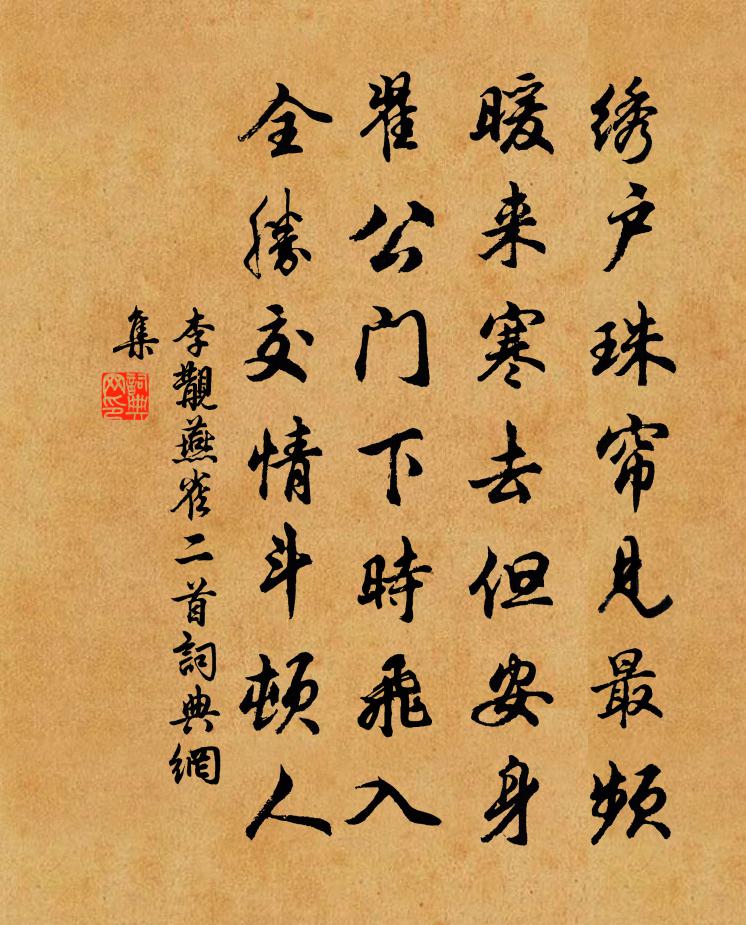 绣户珠帘见最频
暖来寒去但安身
翟公门下時飛入
全勝交情斗顿人
李覯燕雀二首詞典網
集
詞典网印